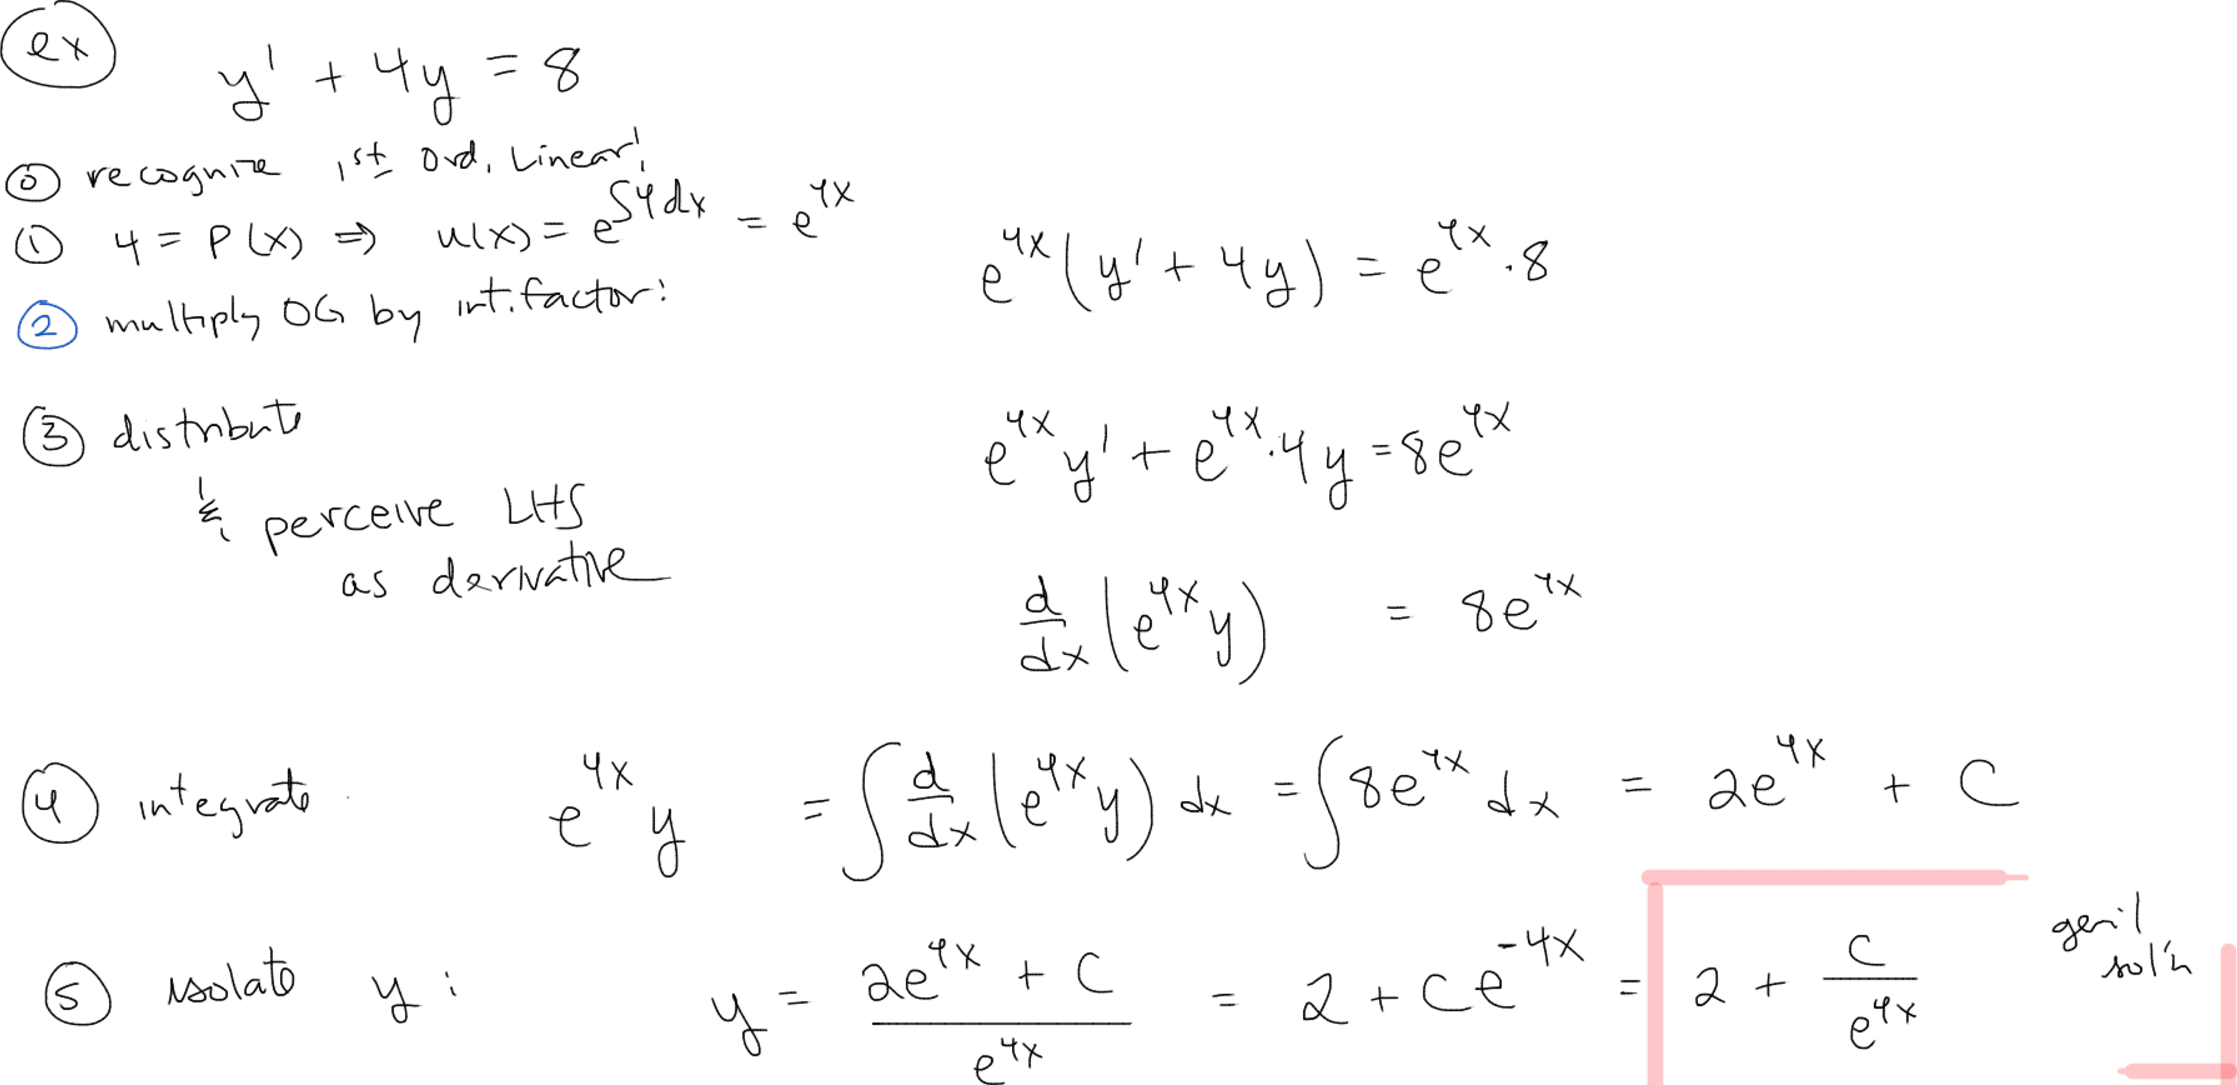 ex
y' + 4y = 8
⓪ recognize 1st Ord. Linear!
① 4 = P(x) ⇒ u(x) = e^{∫4dx} = e^{4x}
② multiply OG by int. factor:
e^{4x}(y' + 4y) = e^{4x}·8
③ distribute
e^{4x}y' + e^{4x}·4y = 8e^{4x}
& perceive LHS
as derivative
d/dx (e^{4x}y) = 8e^{4x}
④ integrate e^{4x}y = ∫ d/dx (e^{4x}y) dx = ∫8e^{4x} dx = 2e^{4x} + C
⑤ isolate y: y = (2e^{4x} + C)/e^{4x} = 2 + Ce^{-4x} = 2 + C/e^{4x}
gen'l
sol'n